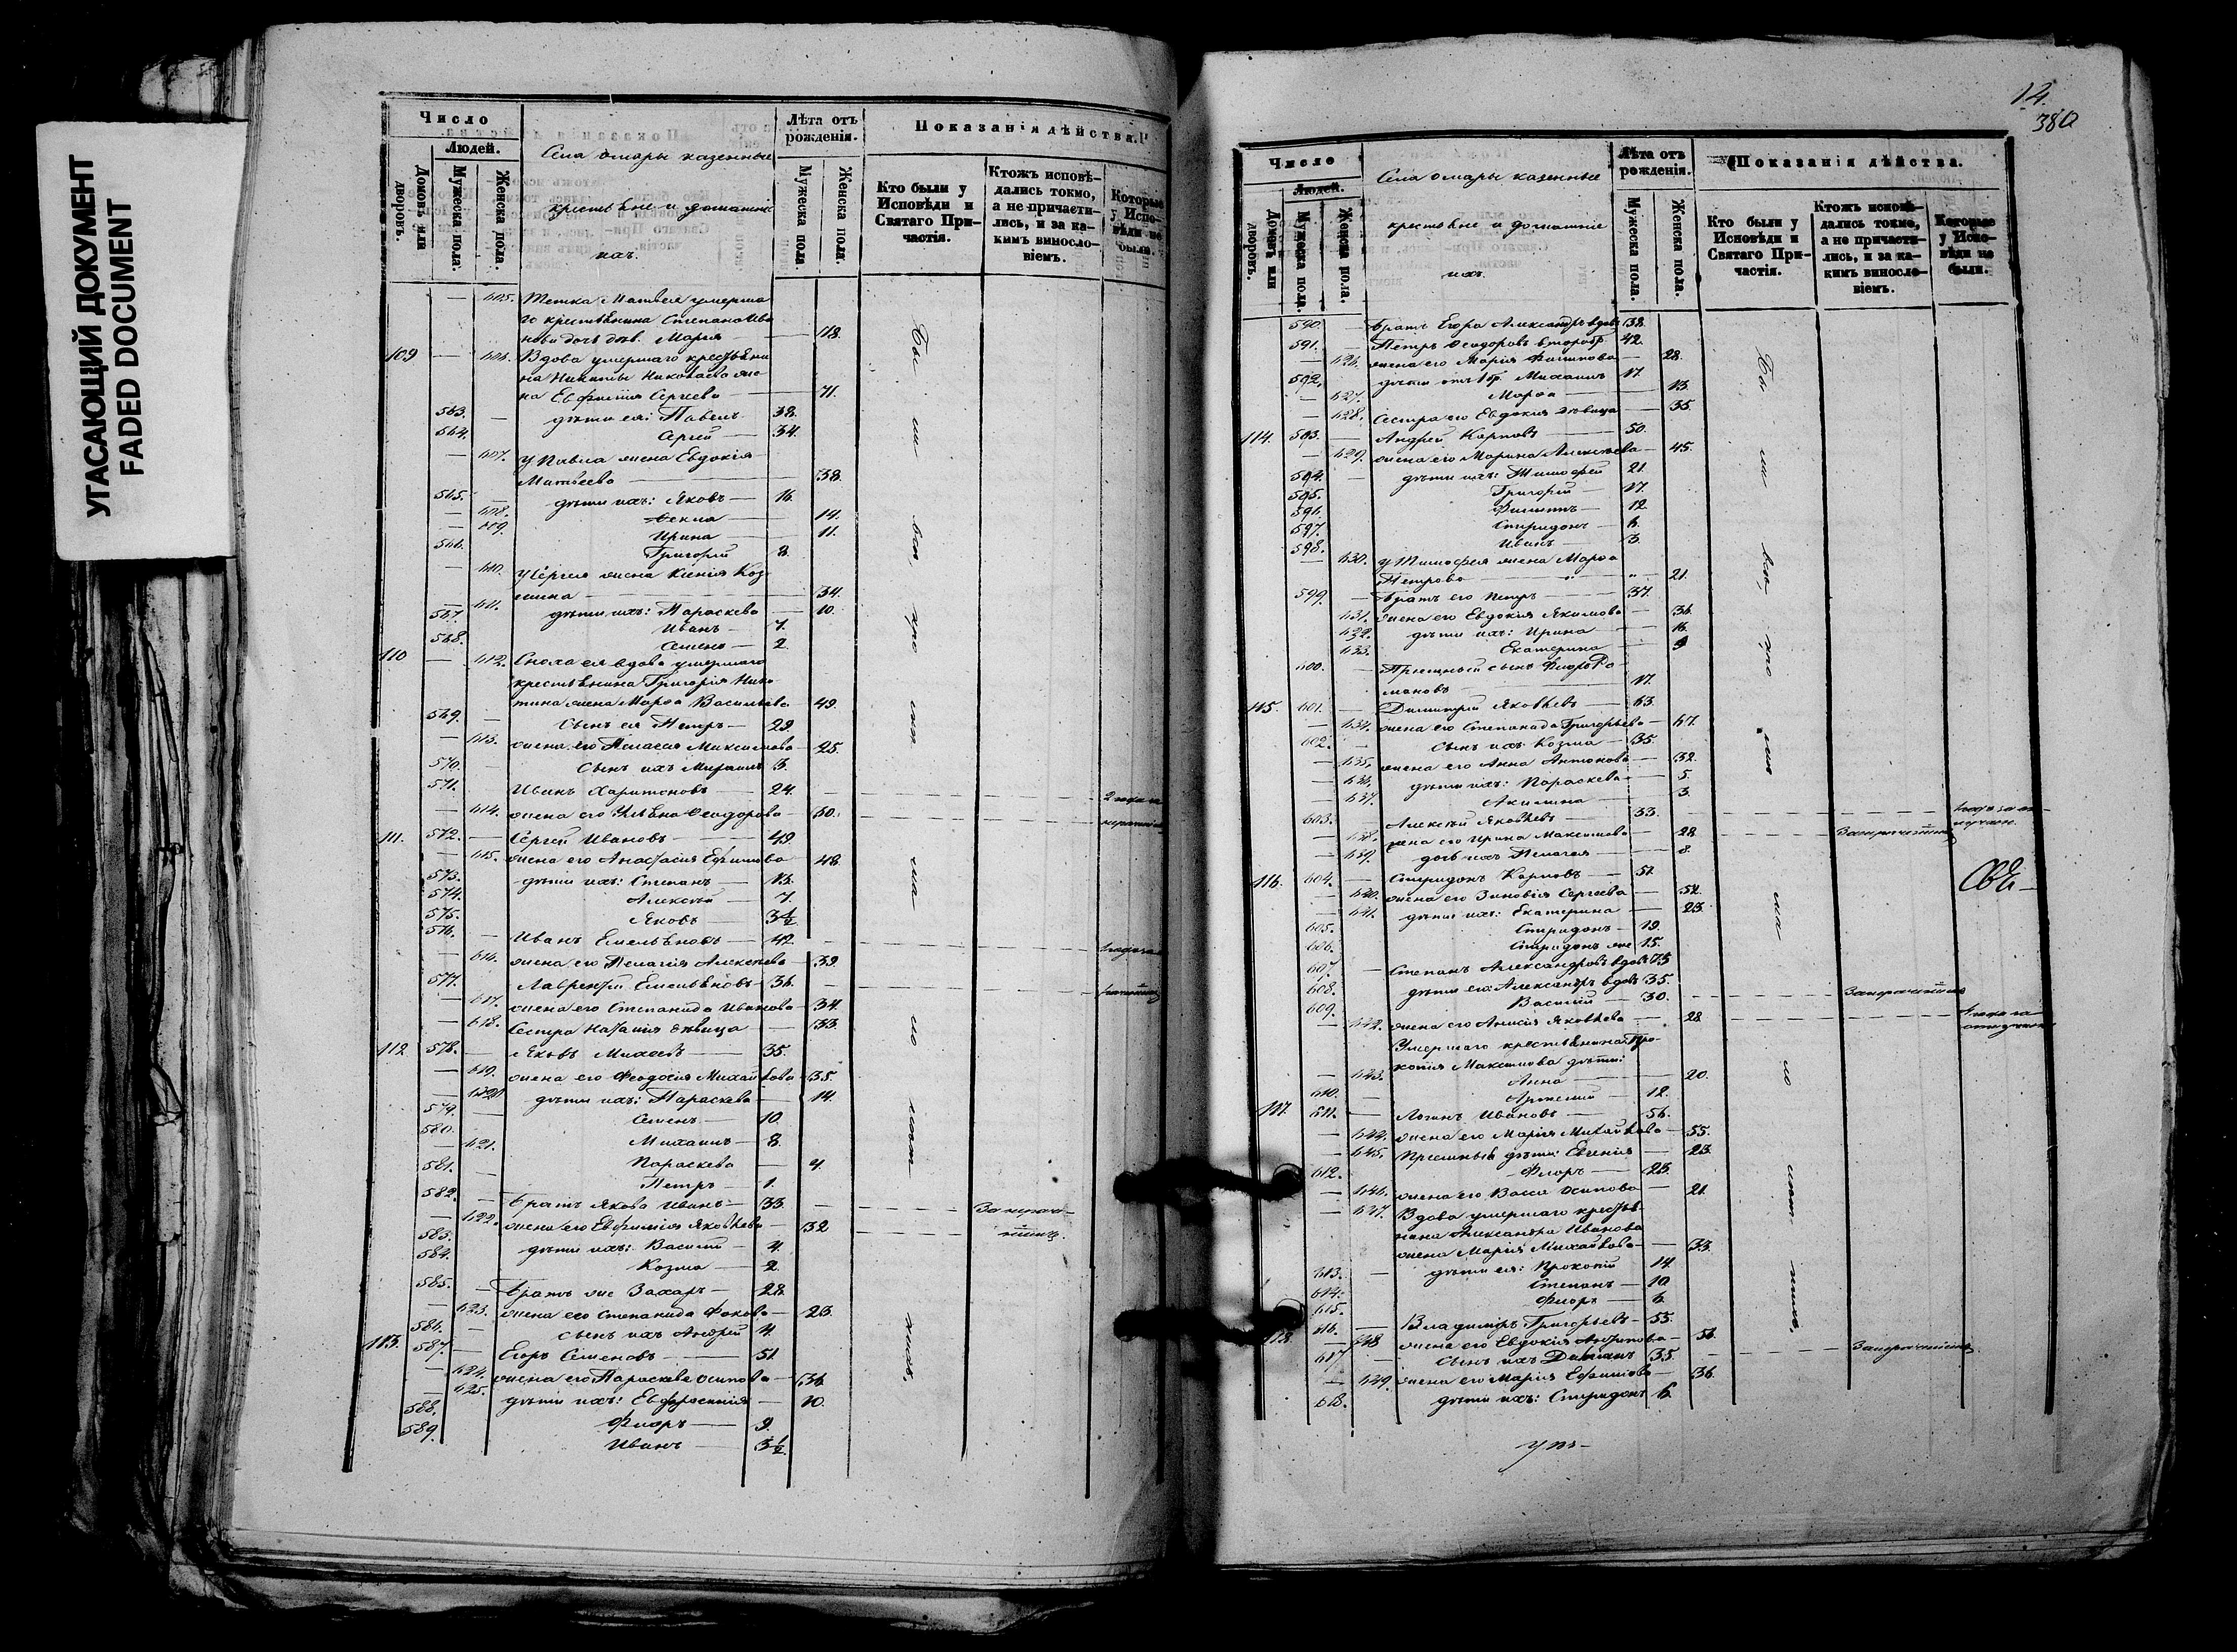 УГАСАЮЩИЙ ДОКУМЕНТ
FADED DOCUMENT
Число
Людей.
Домовъ или дворовъ.
Мужеска пола.
Женска пола.
Села Омары казенные
крестьяне и домашніе
ихъ.
Лѣта отъ рожденія.
Мужеска пола.
Женска пола.
Показанія дѣйства.
Кто были у Исповѣди и Святаго Причастія.
Ктожъ исповѣдались токмо, а не причастились, и за какимъ винословіемъ.
Которые у Исповѣди не были.
605. Тетка Матвея умерша
го крестьянина Степана Ива
нова дочь дев. Марія 48.
109 606. Вдова умершаго крестьяни
на Никиты Николаева же
на Евфимія Сергеева 71.
563. дѣти ея: Павелъ 38.
564. Сергій 34.
607. у Павла жена Евдокія
Матвеева 38.
565. дѣти ихъ: Яковъ 16.
608. Фекла 14.
609. Ирина 11.
566. Григорій 8.
610. у Сергея жена Ксенія Коз
мина 34.
611. дѣти ихъ: Параскева 10.
567. Иванъ 7.
568. Семенъ 2.
110 612. Сноха ея вдова умершаго
крестьянина Григорія Ники
тина жена Марѳа Васильева 49.
569. Сынъ ея Петръ 29.
613. жена его Пелагея Максимова 25.
570. Сынъ ихъ Михаилъ 3.
571. Иванъ Харитоновъ 24.
614. жена его Ульяна Ѳеодорова 30.
111. 572. Сергей Ивановъ 49.
615. жена его Анастасія Ефимова 48.
573. дѣти ихъ: Степанъ 13.
574. Алексей 7.
575. Яковъ 3½
576. Иванъ Емельяновъ 42.
616. жена его Пелагія Алексеева 39.
577. Лаврентій Емельяновъ 36.
617. жена его Степанида Иванова 34.
618. Сестра Наталія девица 33.
112 578. Яковъ Михеевъ 35.
619. жена его Ѳеодосія Михайлова 35.
620. дѣти ихъ: Параскева 14.
579. Семенъ 10.
580. Михаилъ 8.
621. Параскева 4.
581. Петръ 1.
582. Братъ Якова Иванъ 33.
622. жена его Евфимія Яковлева 32
583. дѣти ихъ: Василій 4.
584. Козма 2.
585. Братъ же Захаръ 28.
623. жена его Степанида Фокова 23
586. сынъ ихъ Андрей 4.
113. 587. Егоръ Семеновъ 51.
624. жена его Параскева Осипова 36.
625. дѣти ихъ: Евфросинія 10.
588. Флоръ 9.
589. Иванъ 3½
14.
380
Число
Людей.
Домовъ или дворовъ.
Мужеска пола.
Женска пола.
Села Омары казенные
крестьяне и домашніе
ихъ.
Лѣта отъ рожденія.
Мужеска пола.
Женска пола.
Показанія дѣйства.
Кто были у Исповѣди и Святаго Причастія.
Ктожъ исповѣдались токмо, а не причастились, и за какимъ винословіемъ.
Которые у Исповѣди не были.
590. Братъ Егора Александръ вдов 38.
591. Петръ Ѳеодоровъ второбр 42.
626. жена его Марія Филипова 28.
592. дѣти отъ 1 бр. Михаилъ 17.
627. Марѳа 13.
628. Сестра его Евдокія девица 35.
114. 593. Андрей Карповъ 50.
629. жена его Марина Алексеева 45.
594. дѣти ихъ: Тимофей 21.
595. Григорій 17.
596. Филиппъ 12.
597. Спиридонъ 6.
598. Иванъ 3.
630. у Тимофея жена Марѳа
Петрова 21.
599. Братъ его Петръ 37.
631. жена его Евдокія Якимова 36.
632. дѣти ихъ: Ирина 16.
633. Екатерина 9
600. Пріемный сынъ Флоръ Ро
мановъ 17.
115 601. Димитрій Яковлевъ 63.
634. жена его Степанида Григорьева 67.
602. сынъ ихъ Козма 35.
635. жена его Анна Антонова 32.
636. дѣти ихъ: Параскева 5.
637. Акилина 3.
603. Алексѣй Яковлевъ 33.
638. жена его Ирина Максимова 28
639. дочь ихъ Пелагея 8.
116. 604. Спиридонъ Карповъ 51.
640. жена его Зиновія Сергеева 52.
641. дѣти ихъ: Екатерина 23.
605. Спиридонъ 19.
606. Спиридонъ же 15.
607. Степанъ Александровъ вдовъ 73
608. дѣти его: Александръ вдовъ 35.
609. Василій 30.
642. жена его Анисія Яковлева 28
Умершаго крестьянина Про-
копія Максимова дѣти:
643. Анна 20.
610. Артемій 12.
117. 611. Логинъ Ивановъ 56.
644. жена его Марія Михайлова 55.
645. Пріемныя дѣти: Евгенія 23.
612. Флоръ 23.
646. жена его Васса Осипова 21.
647. Вдова умершаго крестья-
нина Александра Иванова
жена Марія Михайлова 33.
613. дѣти ея: Прокопій 14.
614. Степанъ 10
615. Флоръ 6.
118. 616. Владиміръ Григорьевъ 55.
648 жена его Евдокія Антипова 56.
617 сынъ ихъ Даміанъ 35.
649. жена его Марія Ефимова 36.
618. дѣти ихъ: Спиридонъ 6.